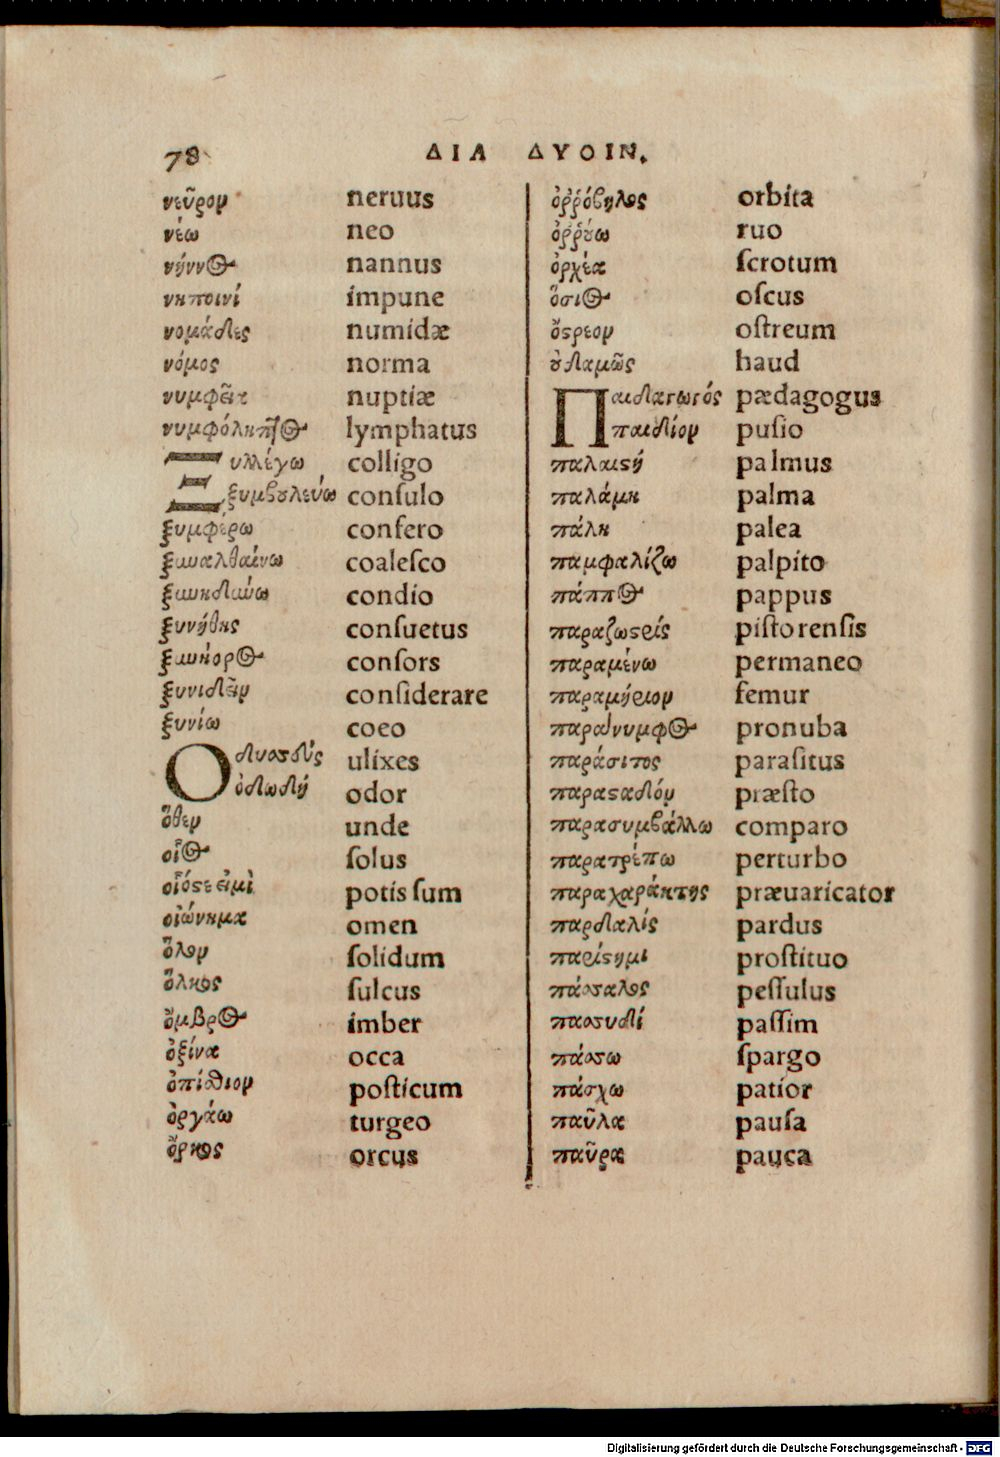 78 ΔΙΑ ΔΥΟΙΝ.
νεῦρον neruus
νέω neo
νήννος nannus
νηποινί impune
νομάδες numidæ
νόμος norma
νυμφεῖα nuptiæ
νυμφόληπτος lymphatus
Ξυλλέγω colligo
ξυμβουλεύω conſulo
ξυμφέρω confero
ξυναλθαίνω coaleſco
ξυνηδύνω condio
ξυνήθης conſuetus
ξυνήορος conſors
ξυνιδεῖν conſiderare
ξυνίω coeo
Οδυσσεύς ulixes
ὀδωδή odor
ὅθεν unde
οἶος ſolus
οἷός τε εἰμὶ potis ſum
οἰώνημα omen
ὅλον ſolidum
ὅλκος ſulcus
ὄμβρος imber
ὀξίνα occa
ὀπίσθιον poſticum
ὀργάω turgeo
ὅρκος orcus
ὀῤῥόβηλος orbita
ὀῤῥύω ruo
ὀρχέα ſcrotum
ὅσιος oſcus
ὄστρεον oſtreum
οὐδαμῶς haud
Παιδαγωγός pædagogus
παιδίον puſio
παλαιστή palmus
παλάμη palma
πάλη palea
παμφαλίζω palpito
πάππος pappus
παραζωστρίς piſtorenſis
παραμένω permaneo
παραμήριον femur
παράνυμφος pronuba
παράσιτος paraſitus
παρασταδόν præſto
παρασυμβάλλω comparo
παρατρέπω perturbo
παραχαράκτης præuaricator
παρδαλίς pardus
παρίστημι proſtituo
πάσσαλος peſſulus
πασσυδί paſſim
πάσσω ſpargo
πάσχω patior
παῦλα pauſa
παῦρα pauca
Digitalisierung gefördert durch die Deutsche Forschungsgemeinschaft - DFG